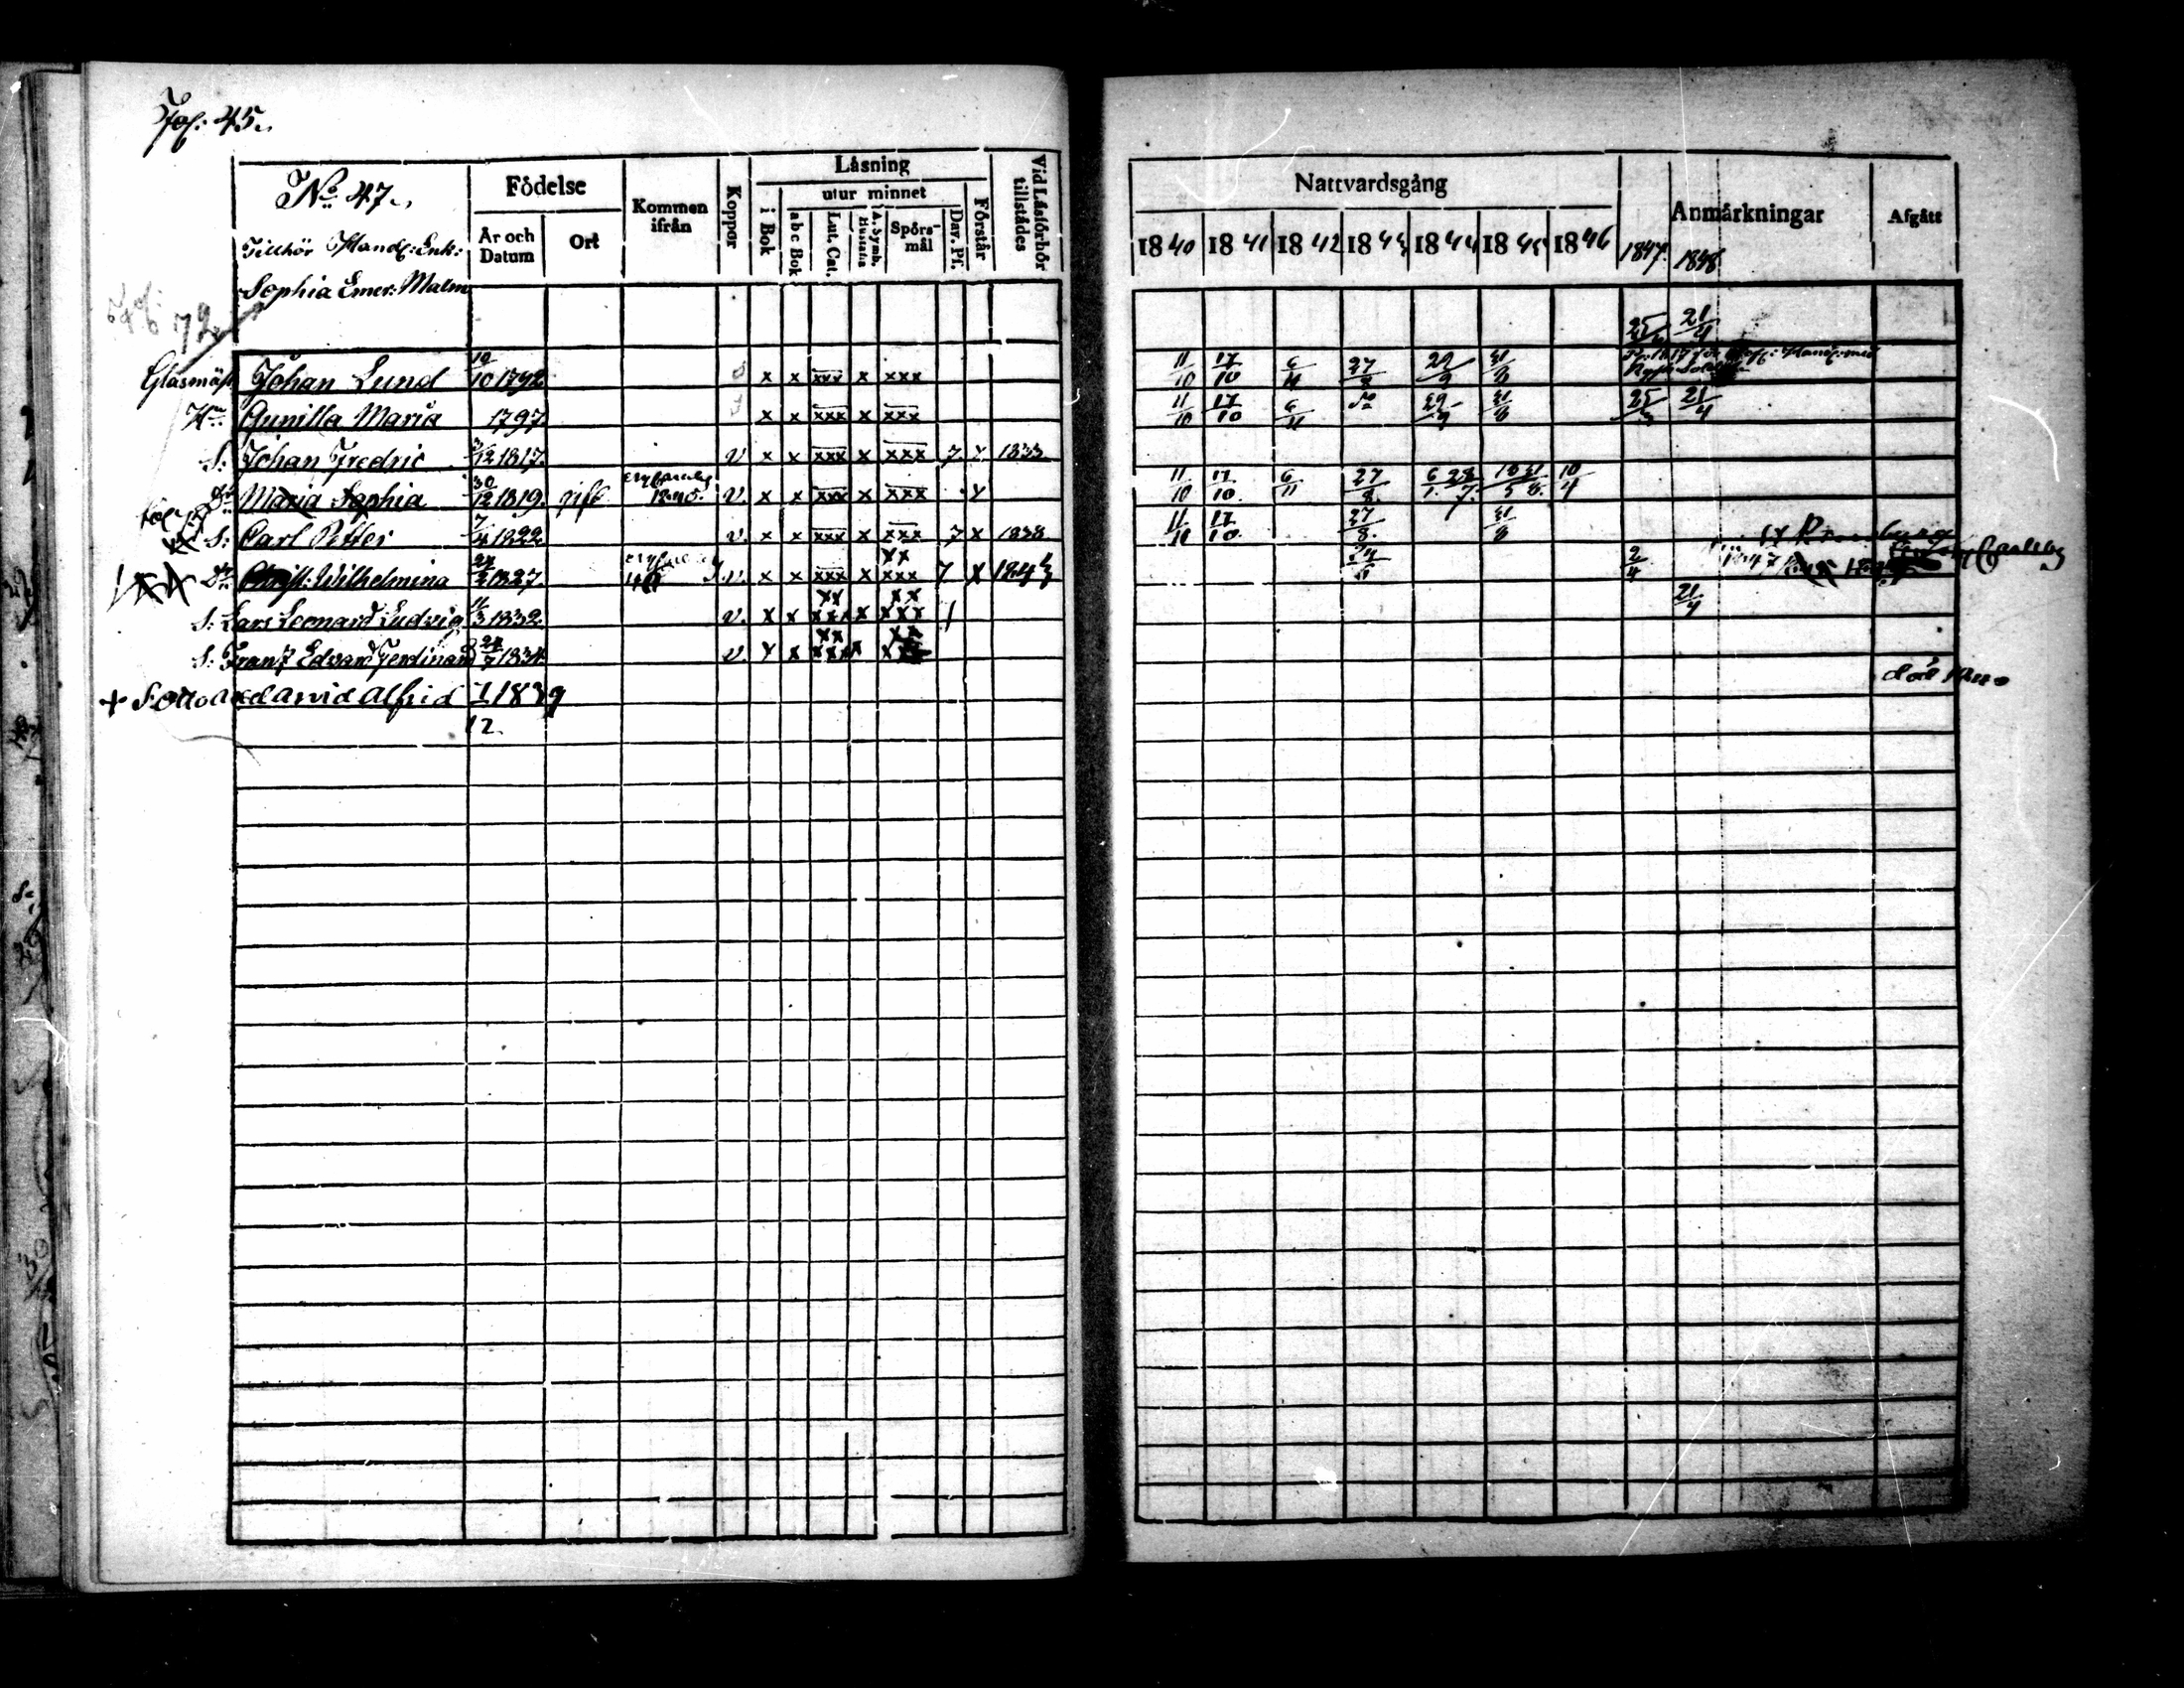 Fol: 45.
No 47.
Tillhör Handl: Enk:
Sophia Emer: Malm
Födelse
År och Datum
Ort
Kommen ifrån
Koppor
Läsning
i Bok
utur minnet
abc Bok
Lut. Cat.
A. Symb. Hustafla
Spörsmål
Dav. Pf.
Förstår
Vid Läsförhör tillstädes
Nattvardsgång
1840 1841 1842 1843 1844 1845 1846
1847 1848
Anmärkningar
Afgått
Fol: 72
25 21/4
Glasmäst Johan Lund 10/10 1792 x x xxx x xxx 11/10 17/10 6/11 27/8 29/9 31/8
Hu Gunilla Maria 1797 x x xxx x xxx 11/10 17/10 6/11 do 29/9 31/8 25/3 21/4
S: Johan Fredric 3/12 1817. v x x xxx x xxx 7 x 1833
Dr Maria Sophia 30/12 1819. gift 1840. v. x x xxx x xxx x 11/10 17/10. 6/11 27/8. 6/1. 28/7. 18/5 31/8. 10/4
S: Carl Petter 7/4 1822 v. x x xxx x xxx 7 x 1838 11/10 17/10. 27/8. 31/8
Dr Christ. Wilhelmina 24/2 1827. v. x x xxx x xx xxx 7 x 1843 24/6 2/4 1847
S: Lars Leonard Ludvig 11/3 1832. v. x x xx xxx x xx xxx / 21/4
S: Franz Edvard Ferdinand 24/7 1834. v. x x xx xxx x xx
+ S: Otto Axel Arvid Alfrid 1/12. 1839 död 1840